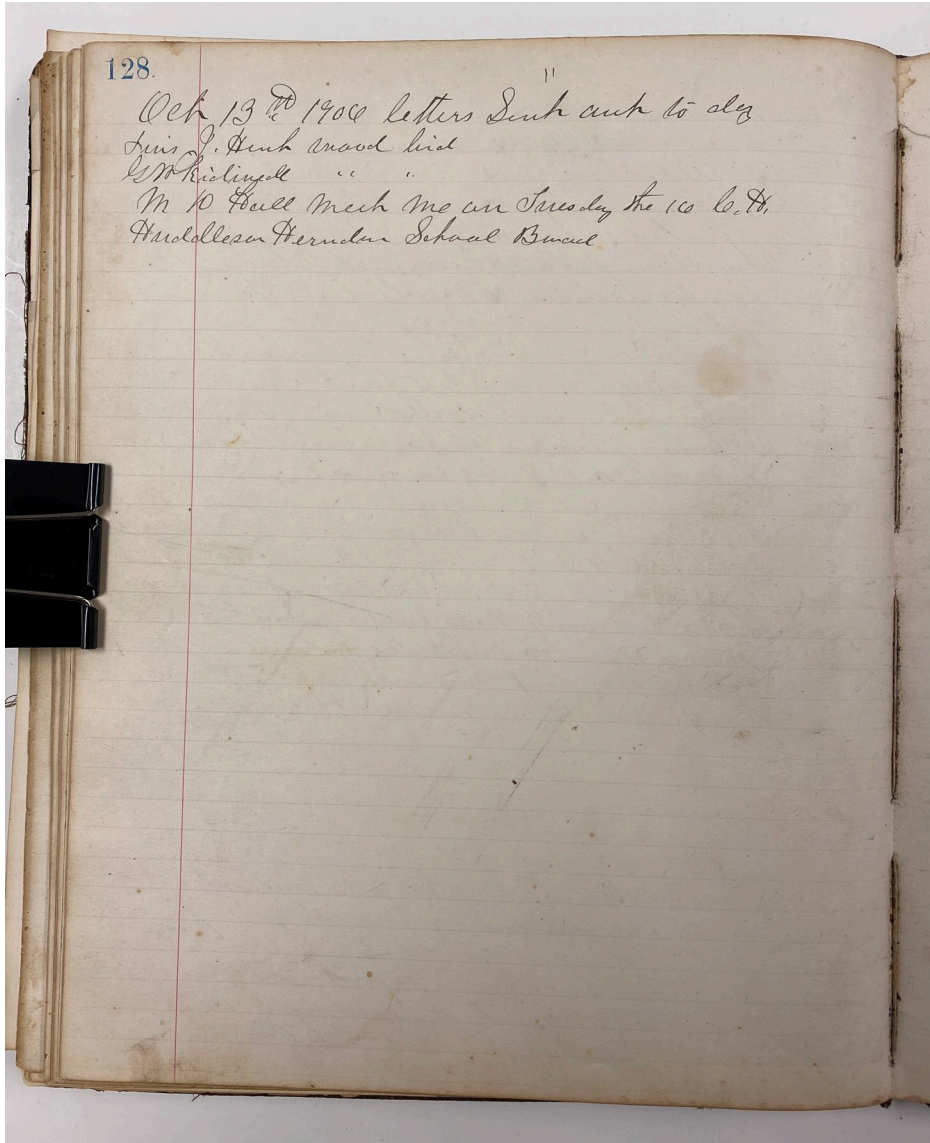 128.
"
Oct 13th 1906 letters Sent out to day
J. Hunt wood bid
" "
M D Hall Meet me on Tuesday the 16 C.H.
Huddleson Herndon School Board